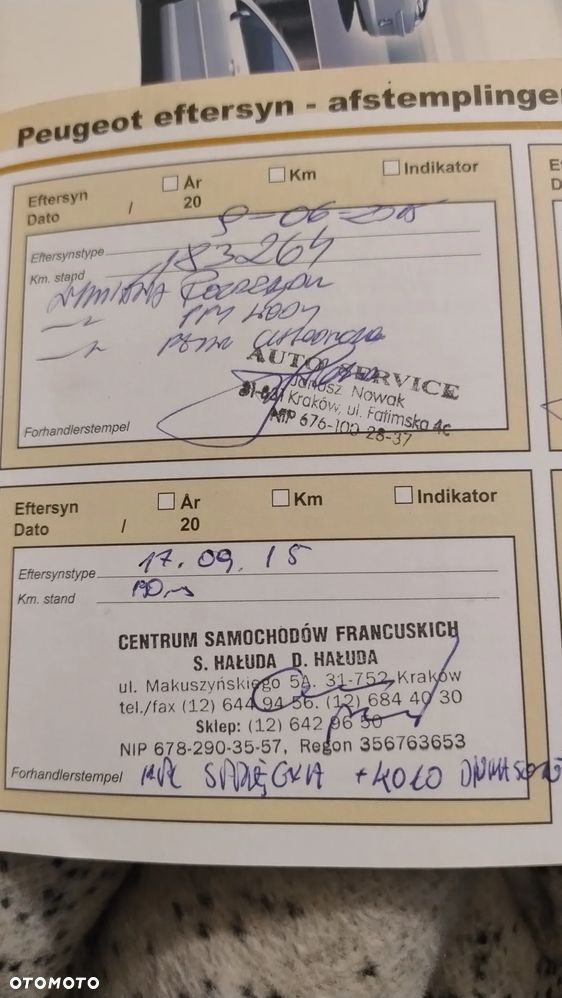 Peugeot eftersyn - afstemplinge
Eftersyn År Km Indikator
Dato / 20
9-06-2015
Eftersynstype
183264
Km. stand
AUTO SERVICE
Janusz Nowak
Kraków, ul. Fatimska 4c
NIP 676-100-28-37
Forhandlerstempel
Eftersyn År Km Indikator
Dato / 20
17.09.15
Eftersynstype
Km. stand
CENTRUM SAMOCHODÓW FRANCUSKICH
S. HAŁUDA D. HAŁUDA
ul. Makuszyńskiego 5A. 31-752 Kraków
tel./fax (12) 644 94 56. (12) 684 40 30
Sklep: (12) 642 96 50
NIP 678-290-35-57, Regon 356763653
Forhandlerstempel
+ KOŁO
OTOMOTO